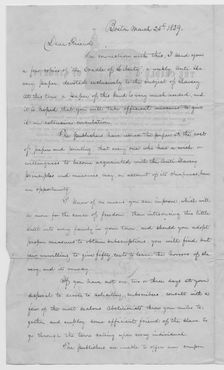 Boston March 25th 1839.
Dear Friend,
In connection with this, I send you
a few copies of the Cradle of Liberty, a weekly Anti-Sla-
very paper devoted exclusively to the cause of Slavery.
At this time a paper of this kind is very much needed, and
it is hoped that you will take efficient measures to give
it an extensive circulation.
The publishers have issued the paper at the cost
of paper and printing that every one who has a wish or
willingness to become acquainted with the Anti-Slavery
principles and measures may on account of its cheapness have
an opportunity.
I know of no means you can improve which will
do more for the cause of freedom than introducing this little
sheet into every family in your town, and should you adopt
proper measures to obtain subscriptions you will find but
few unwilling to give fifty cents to learn the horrors of sla-
very and its remedy.
If you have not one two or three days at your
disposal to devote to soliciting subscribers consult with a
few of the most zealous Abolitionists throw your mites to-
gether and employ some efficient friend of the slave to
go through the town calling upon every individual.
The publishers are unable to offer any compen-